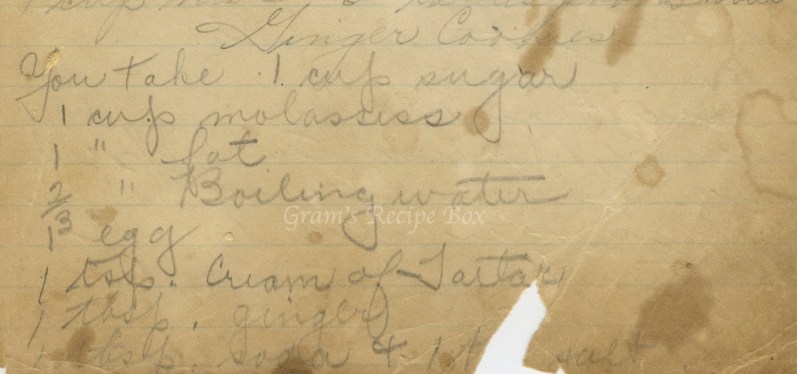 1 cup
Ginger Cookies
You take 1 cup sugar
1 cup molascess
1 " fat
2/3 " Boiling water
Gram's Recipe Box
1 egg
1 tsp. Cream of Tartar
1 tbsp. ginger
1 tbsp. soda + 1 t salt